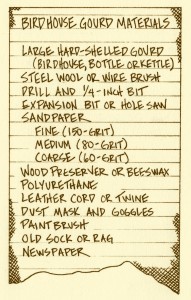 BIRDHOUSE GOURD MATERIALS
LARGE HARD-SHELLED GOURD
(BIRDHOUSE, BOTTLE OR KETTLE)
STEEL WOOL OR WIRE BRUSH
DRILL AND 1/4-INCH BIT
EXPANSION BIT OR HOLE SAW
SANDPAPER
FINE (150-GRIT)
MEDIUM (80-GRIT)
COARSE (60-GRIT)
WOOD PRESERVER OR BEESWAX
POLYURETHANE
LEATHER CORD OR TWINE
DUST MASK AND GOGGLES
PAINTBRUSH
OLD SOCK OR RAG
NEWSPAPER